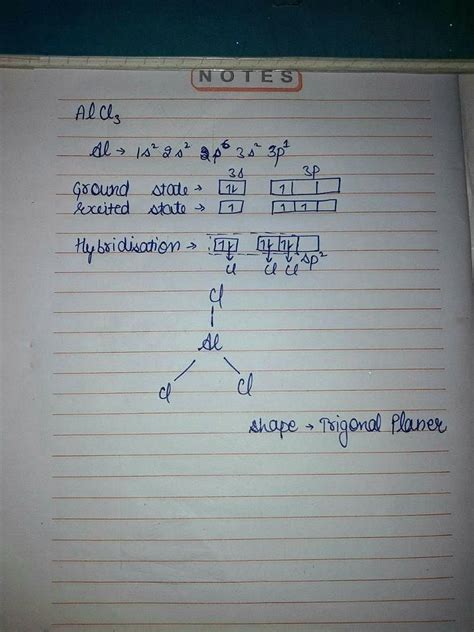 NOTES
AlCl3
Al → 1s² 2s² 2p⁶ 3s² 3p¹
3s 3p
Ground state → 1⇂ 1
Excited state → 1 1 1
Hybridisation → 1⇂ 1⇂ 1⇂ sp²
Cl Cl Cl
Cl
Al
Cl Cl
shape → Trigonal Planer